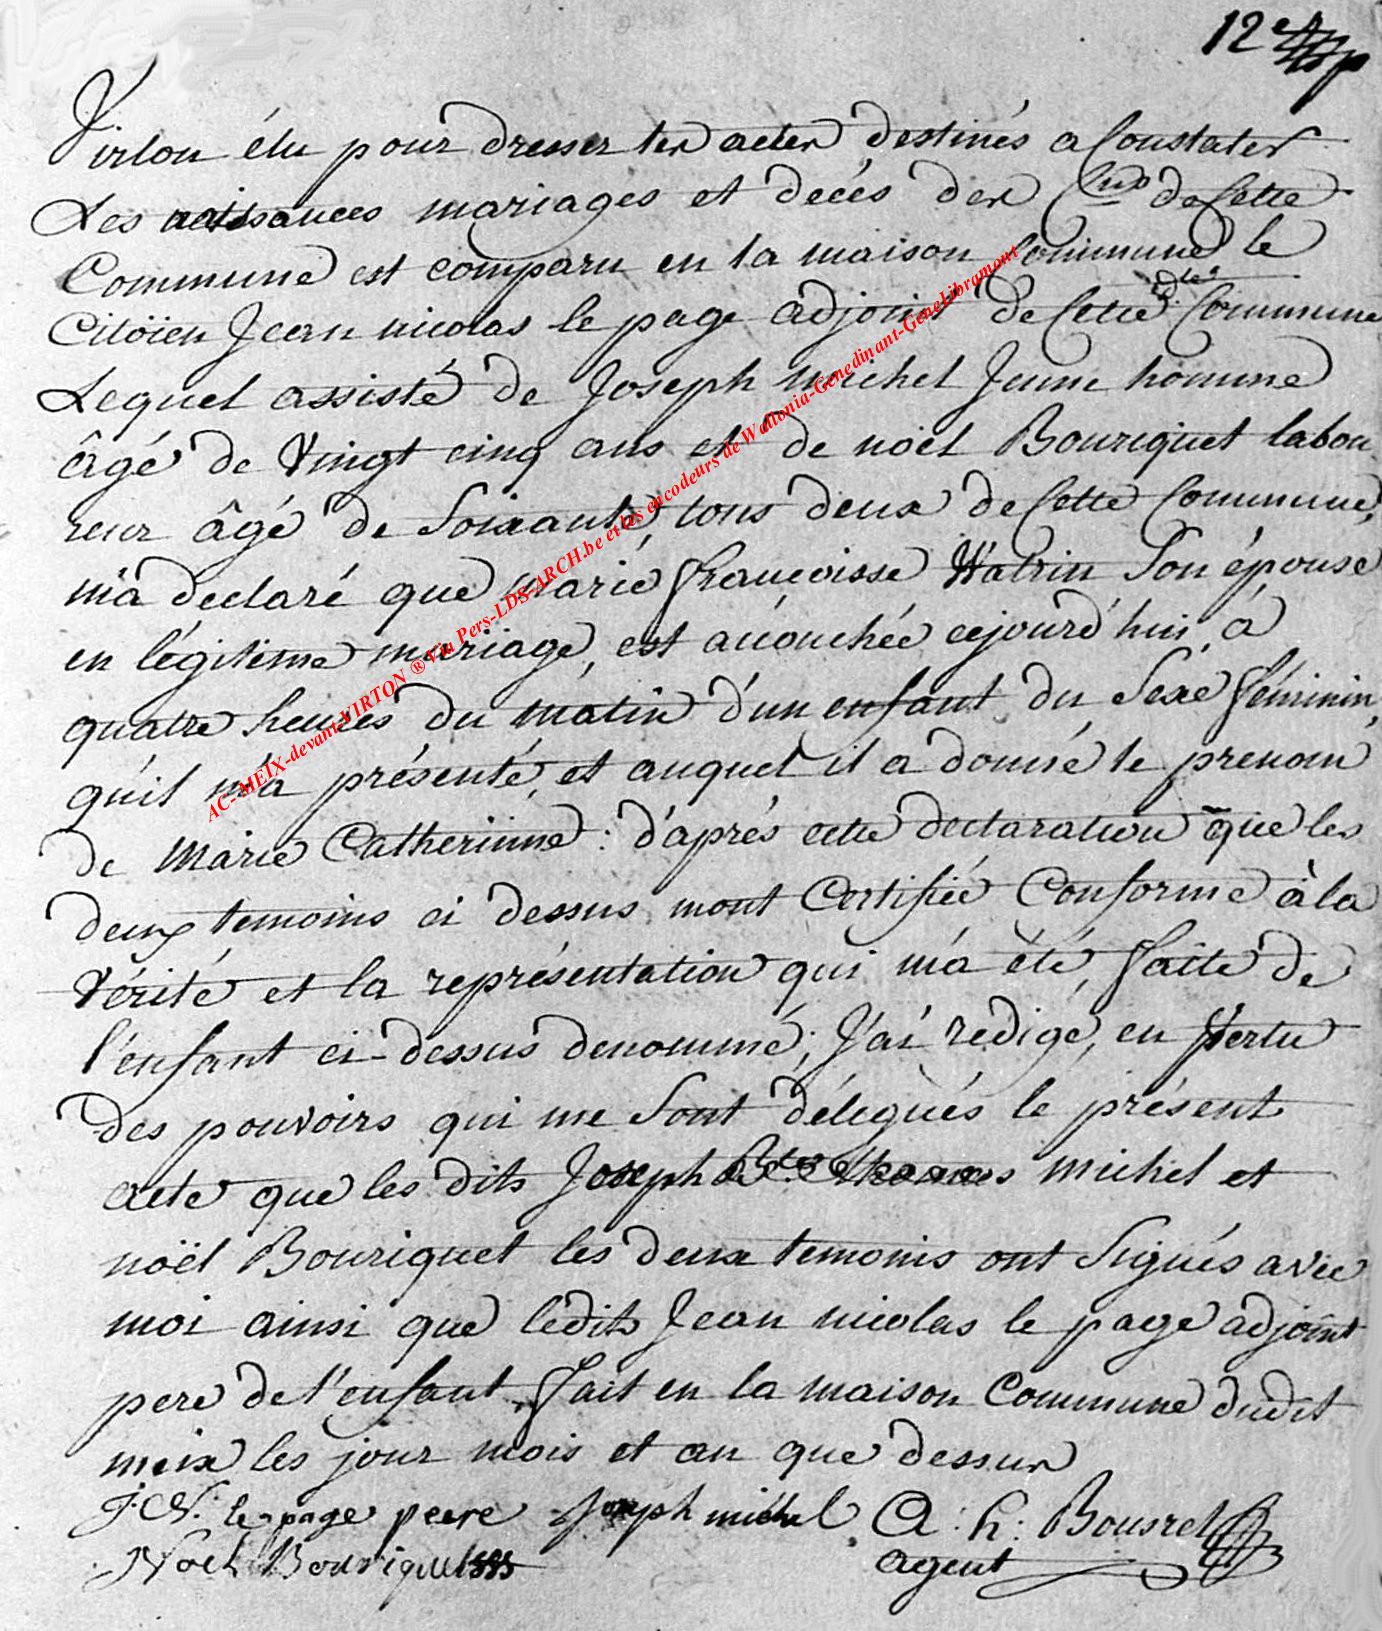 12e
Virton élu pour dresser les actes destinés a Constater
Les naissances mariages et décés des de Cette
Commune est comparu en la maison Commune le
Citöien Jean nicolas le page adjoint de Cette dte Commune
Lequel assisté de Joseph michel Jeune homme
âgé de Vingt cinq ans et de noël Bouriquet labou
reur âgé de Soixante, tous deux de Cette Commune,
m'a declaré que marie françoisse Watrin Son épouse
en légitime mariage, est acouchée cejourd'hui, à
quatre heures du matin d'un enfant du Sexe féminin,
qu'il m'a présenté, et auquel il a donné le prenom
de Marie Catherinne : d'aprés cette declaration que les
deux temoins ci dessus mont Certifié Conforme à la
Vérité et la représentation qui m'a été, faite de
l'enfant ci-dessus denommé; J'ai redigé, en Vertu
des pouvoirs qui me Sont délegués le présent
acte que les dits Joseph michel et
noël Bouriquet les deux temoins ont Signés avec
moi ainsi que ledits Jean nicolas le page adjoint
pere de l'enfant, fait en la maison Commune dudit
meix les jour mois et an que dessus
J: N: le page peere Joseph michel A: h: Bousrel
Noel Bouriquet agent
AC-MEIX-devant-VIRTON ® Via Pers-LDS-ARCH.be et les encodeurs de Wallonia-Genedinant-GeneLibramont